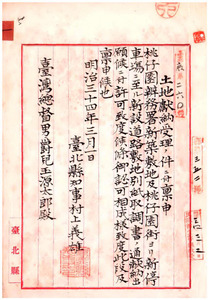 土地献納受理ノ件ニ付稟申
桃仔園辨務署新築敷地及桃仔園街ヨリ新停
車場ニ至ル新設道路敷地別紙取調書ノ通献納出
願候ニ付許可致度候條御認可相成様致度此段及
稟申候也
明治三十四年三月一日
臺北縣知事村上義雄
臺灣總督男爵兒玉源太郎殿
臺北縣